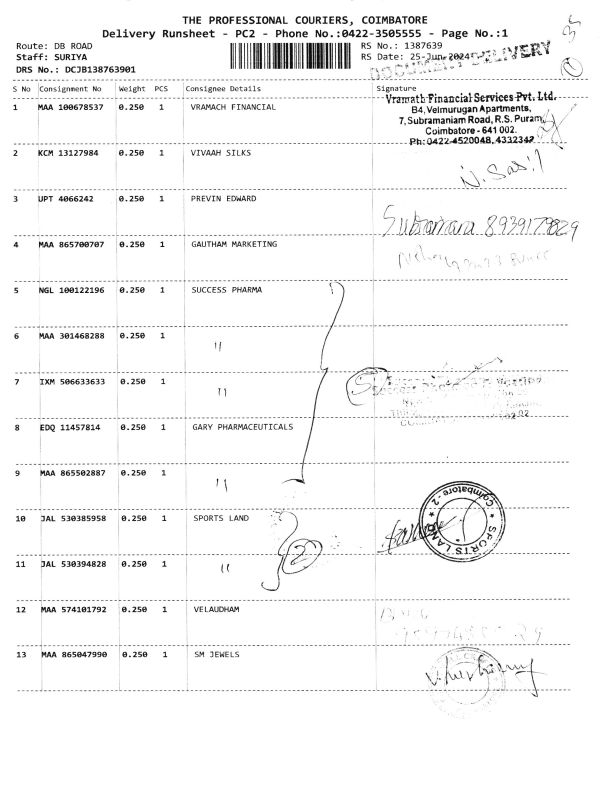 THE PROFESSIONAL COURIERS, COIMBATORE
Delivery Runsheet - PC2 - Phone No.:0422-3505555 - Page No.:1
Route: DB ROAD
Staff: SURIYA
DRS No.: DCJB138763901
RS No.: 1387639
RS Date: 25-Jun-2024
DOCUMENT DELIVERY
S No Consignment No Weight PCS Consignee Details Signature
1 MAA 100678537 0.250 1 VRAMACH FINANCIAL
Vramath Financial Services Pvt. Ltd.
B4, Velmurugan Apartments,
7, Subramaniam Road, R.S. Puram,
Coimbatore - 641 002.
Ph: 0422-4520048, 4332342
2 KCM 13127984 0.250 1 VIVAAH SILKS
3 UPT 4066242 0.250 1 PREVIN EDWARD
8939179829
4 MAA 865700707 0.250 1 GAUTHAM MARKETING
5 NGL 100122196 0.250 1 SUCCESS PHARMA
6 MAA 301468288 0.250 1 "
7 IXM 506633633 0.250 1 "
8 EDQ 11457814 0.250 1 GARY PHARMACEUTICALS
9 MAA 865502887 0.250 1 "
10 JAL 530385958 0.250 1 SPORTS LAND
2
SPORTS LAND
Coimbatore - 2
11 JAL 530394828 0.250 1 "
12 MAA 574101792 0.250 1 VELAUDHAM
13 MAA 865047990 0.250 1 SM JEWELS